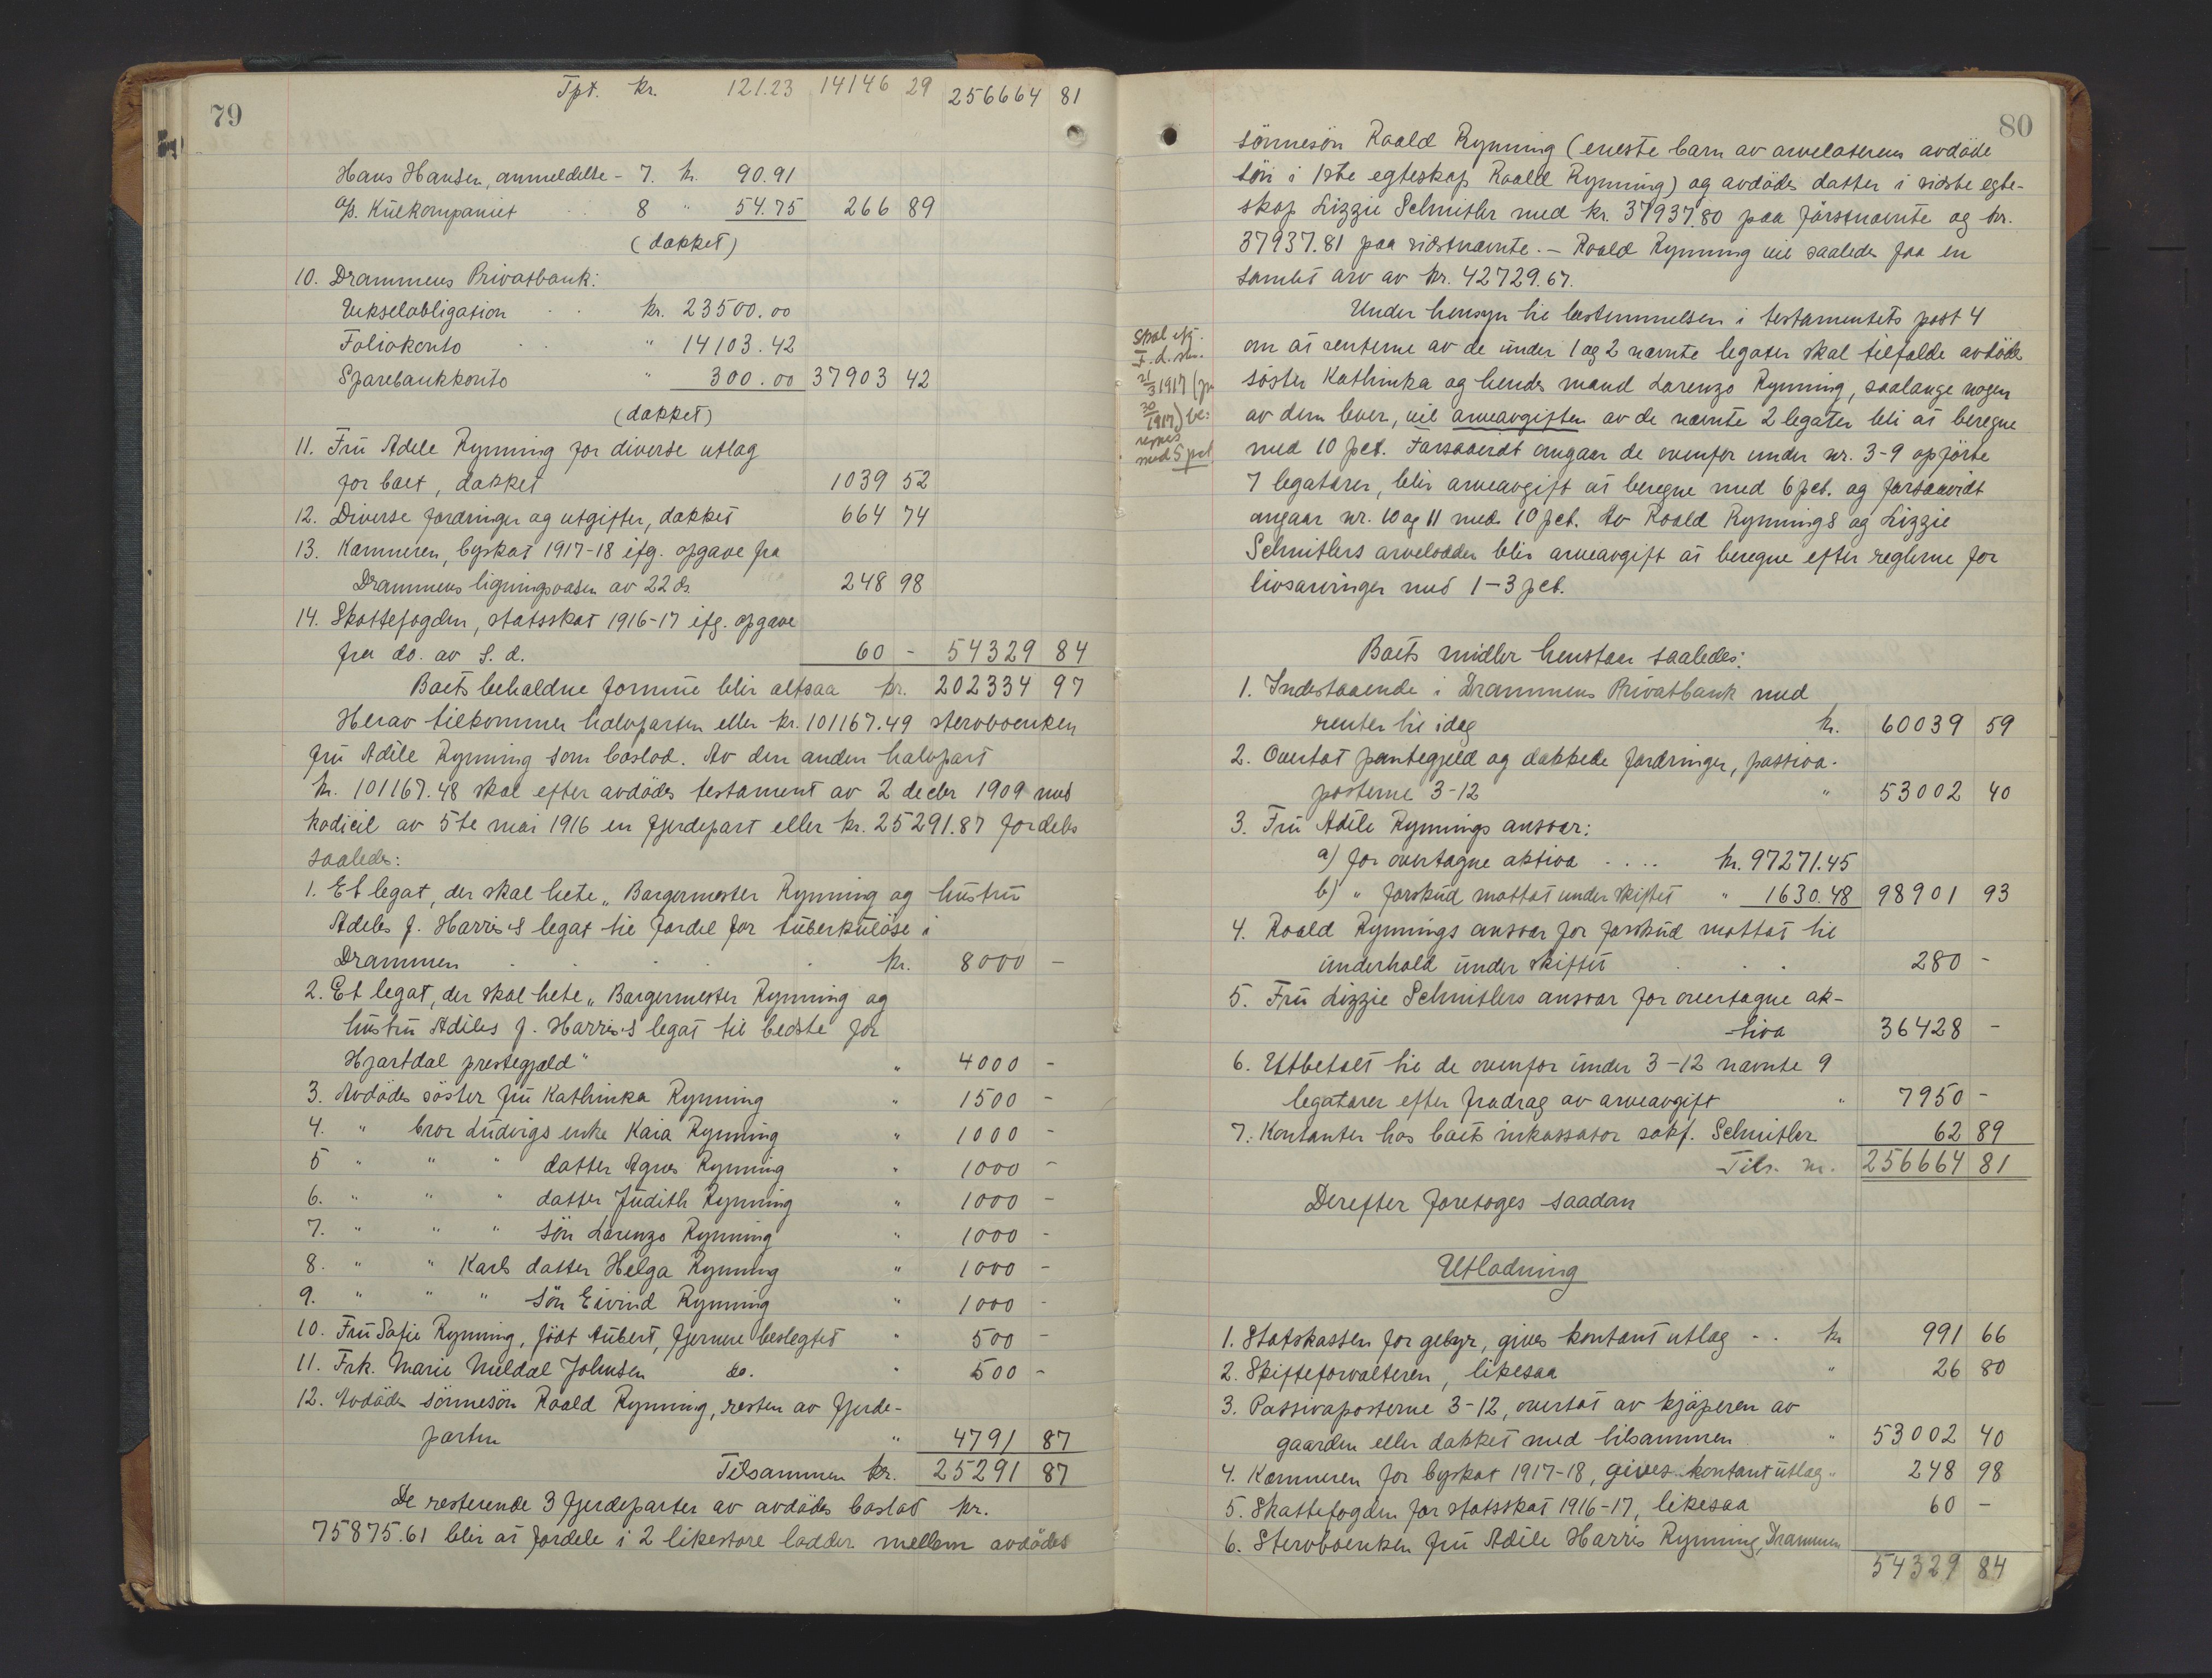 79
Tpt. kr. 121.23 14146 29 256664 81
Hans Hansen, anmeldelse - 7. kr. 90.91
A/s. Kulkompaniet 8 " 54.75 266 89
(dækket)
10. Drammens Privatbank:
Vekselobligation kr. 23500.00
Foliokonto " 14103.42
Sparebankkonto " 300.00 37903 42
(dækket)
11. Fru Adele Rynning for diverse utlag
for boet, dækket 1039 52
12. Diverse fordringer og utgifter, dækket 664 74
13. Kæmneren, byskat 1917-18 ifg. opgave fra
Drammens ligningsvæsen av 22 ds. 248 98
14. Skattefogden, statsskat 1916-17 ifg. opgave
fra do. av s. d. 60 - 54329 84
Boets beholdne formue blir altsaa kr. 202334 97
Herav tilkommer halvparten eller kr. 101167.49 stervboenken
fru Adéle Rynning som boslod. Av den anden halvpart
kr. 101167.48 skal efter avdödes testament av 2 decbr 1909 med
kodicil av 5te mai 1916 en fjerdepart eller kr. 25291.87 fordeles
saaledes:
1. Et legat, der skal hete „Borgermester Rynning og hustru
Adeles f. Harris's legat til fordel for tuberkulöse i
Drammen kr. 8000 -
2. Et legat, der skal hete „Borgermester Rynning og
hustru Adéles f. Harris's legat til bedste for
Hjartdal prestegjæld" " 4000 -
3. Avdödes söster fru Kathinka Rynning " 1500 -
4. " bror Ludvigs enke Kaia Rynning " 1000 -
5 " " " datter Agnes Rynning " 1000 -
6. " " " datter Judith Rynning " 1000 -
7. " " " sön Lorenzo Rynning " 1000 -
8. " " Karls datter Helga Rynning " 1000 -
9. " " " sön Eivind Rynning " 1000 -
10. Fru Sofie Rynning, födt Aubert, fjernere beslegtet " 500 -
11. Frk. Marie Meldal Johnsen do. " 500 -
12. Avdödes sönnesön Roald Rynning, resten av fjerde-
parten " 4791 87
Tilsammen kr. 25291 87
De resterende 3 fjerdeparter av avdödes boslod kr.
75875.61 blir at fordele i 2 likestore lodder mellem avdödes
80
sönnesön Roald Rynning (eneste barn av arvelaterens avdöde
sön i 1ste egteskap Roald Rynning) og avdödes datter i sidste egte-
skap Lizzie Schnitler med kr. 37937.80 paa förstnævnte og kr.
37937.81 paa sidstnævnte. - Roald Rynning vil saaledes faa en
samlet arv av kr. 42729.67.
Under hensyn til bestemmelsen i testamentets post 4
om at renterne av de under 1 og 2 nævnte legater skal tilfalde avdödes
söster Kathinka og hendes mand Lorenzo Rynning, saalænge nogen
av dem lever, vil arveavgiften av de nævnte 2 legater bli at beregne
med 10 pct. Forsaavidt angaar de ovenfor under nr. 3-9 opförte
7 legatarer, blir arveavgift at beregne med 6 pct. og forsaavidt
angaar nr. 10 og 11 med 10 pct. Av Roald Rynnings og Lizzie
Schnitlers arvelodder blir arveavgift at beregne efter reglerne for
livsarvinger med 1-3 pct.
skal efg.
F. d. skr.
21/3 1917 (jr
1917) be:
regnes
med 5 pct
Boets midler henstaar saaledes:
1. Indestaaende i Drammens Privatbank med
renter til idag kr. 60039 59
2. Overtat pantegjeld og dækkede fordringer, passiva-
posterne 3-12 " 53002 40
3. Fru Adéle Rynnings ansvar:
a) for overtagne aktiva .... kr. 97271.45
b) " forskud mottat under skiftet " 1630.48 98901 93
4. Roald Rynnings ansvar for forskud mottat til
underhold under skiftet 280 -
5. Fru Lizzie Schnitlers ansvar for overtagne ak-
tiva 36428 -
6. Utbetalt til de ovenfor under 3-12 nævnte 9
legatarer efter fradrag av arveavgift " 7950 -
7. Kontanter hos boets inkassator sakf. Schnitler 62 89
Tils. kr. 256664 81
Derefter foretoges saadan
Utlodning
1. Statskassen for gebyr, gives kontant utlag - . kr 991 66
2. Skifteforvalteren, likesaa " 26 80
3. Passivaposterne 3-12, overtat av kjöperen av
gaarden eller dækket med tilsammen " 53002 40
4. Kæmneren for byskat 1917-18, gives kontant utlag " 248 98
5. Skattefogden for statsskat 1916-17, likesaa 60 -
6. Stervboenken fru Adéle Harris Rynning, Drammen
54329 84